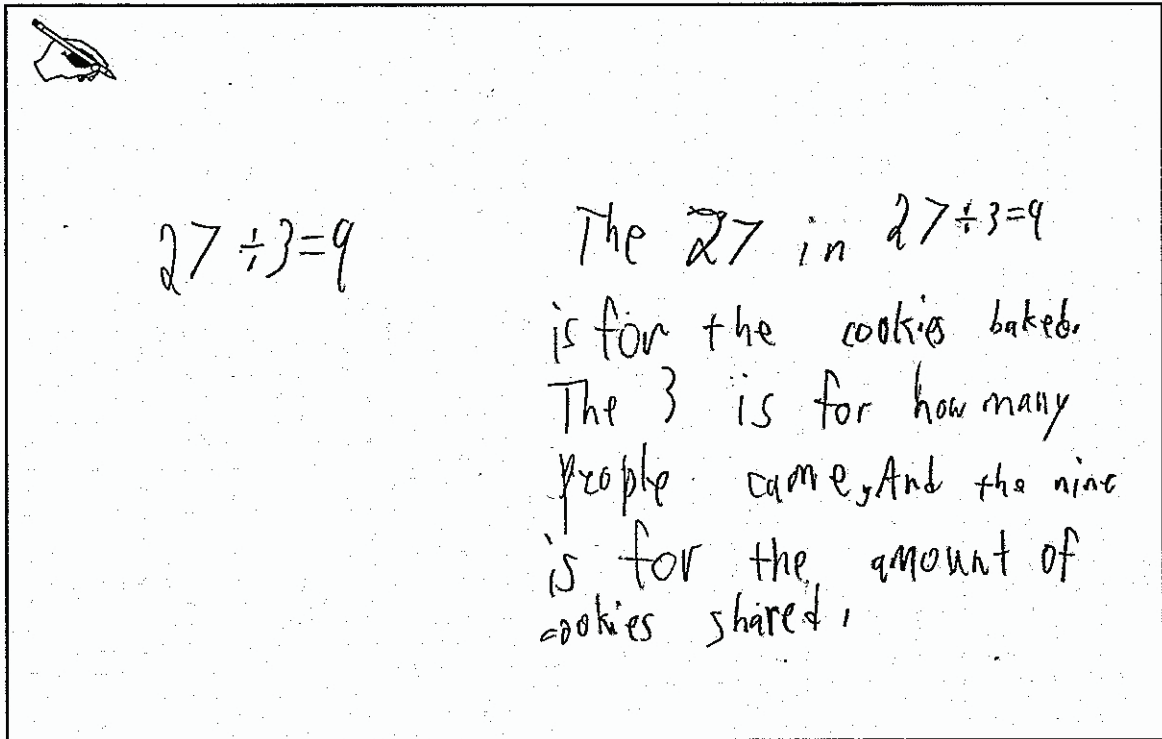 27 ÷ 3 = 9
The 27 in 27 ÷ 3 = 9
is for the cookies baked.
The 3 is for how many
people came, And the nine
is for the amount of
cookies shared,